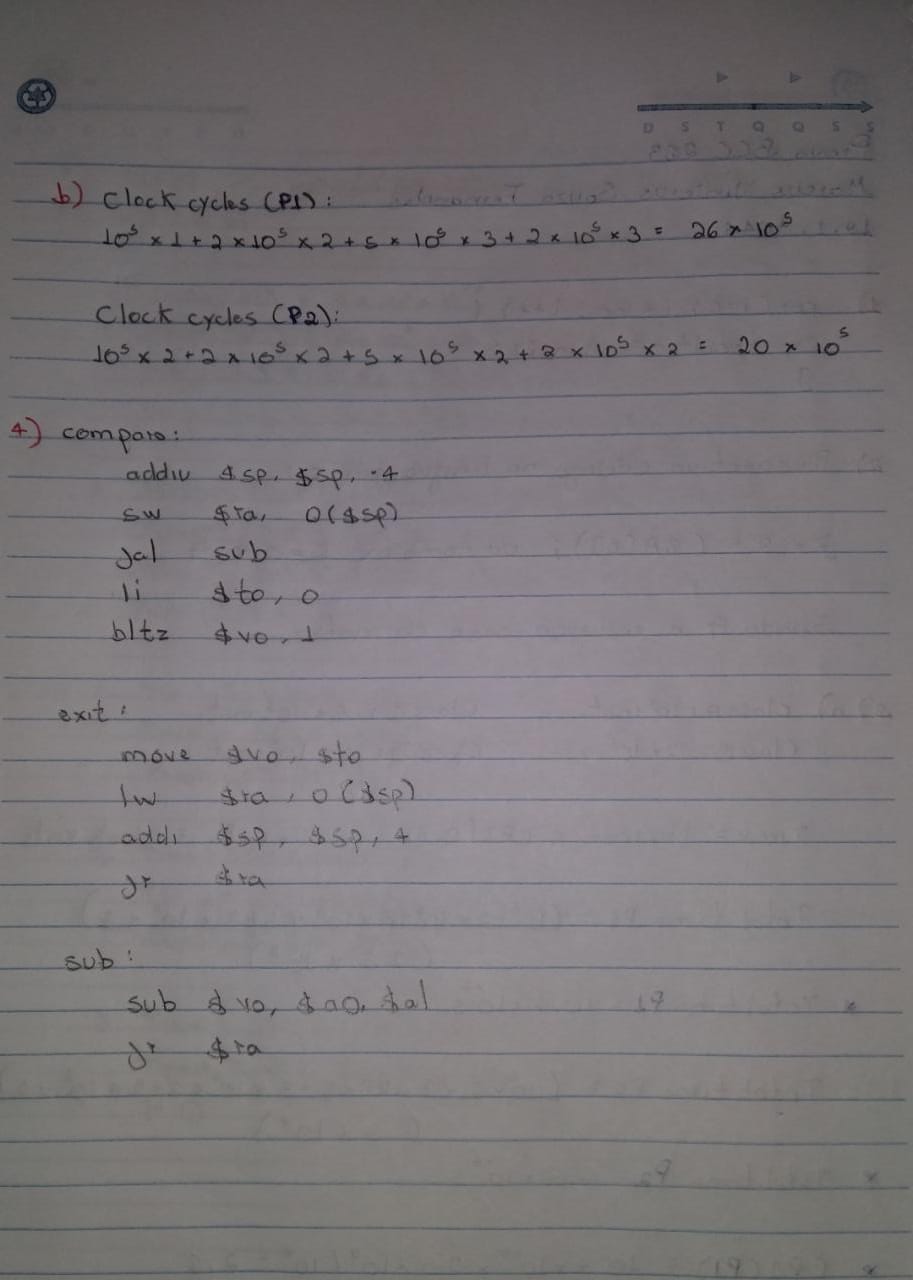 D S T Q Q S S
b) Clock cycles (P1):
10⁵ × 1 + 2 × 10⁵ × 2 + 5 × 10⁵ × 3 + 2 × 10⁵ × 3 = 26 × 10⁵
Clock cycles (P2):
10⁵ × 2 + 2 × 10⁵ × 2 + 5 × 10⁵ × 2 + 2 × 10⁵ × 2 = 20 × 10⁵
4) compare:
addiu $sp, $sp, -4
sw $ra, 0($sp)
jal sub
li $t0, 0
bltz $v0, 1
exit:
move $v0, $t0
lw $ra, 0($sp)
addi $sp, $sp, 4
jr $ra
sub:
sub $v0, $a0, $a1
jr $ra